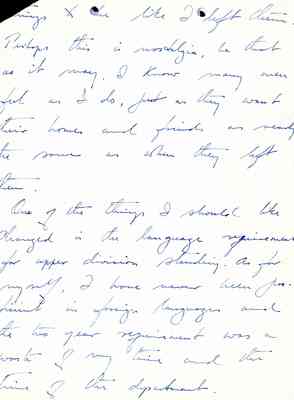 things like I left them.
Perhaps this is nostalgia, be that
as it may. I know many men
feel as I do, just as they want
their homes and friends as nearly
the same as when they left
them.
One of the things I should like
changed is the language requirement
for upper division standing. As for
myself, I have never been pro-
ficient in foreign languages and
the two year requirement was a
waste of my time and the
time of the department.